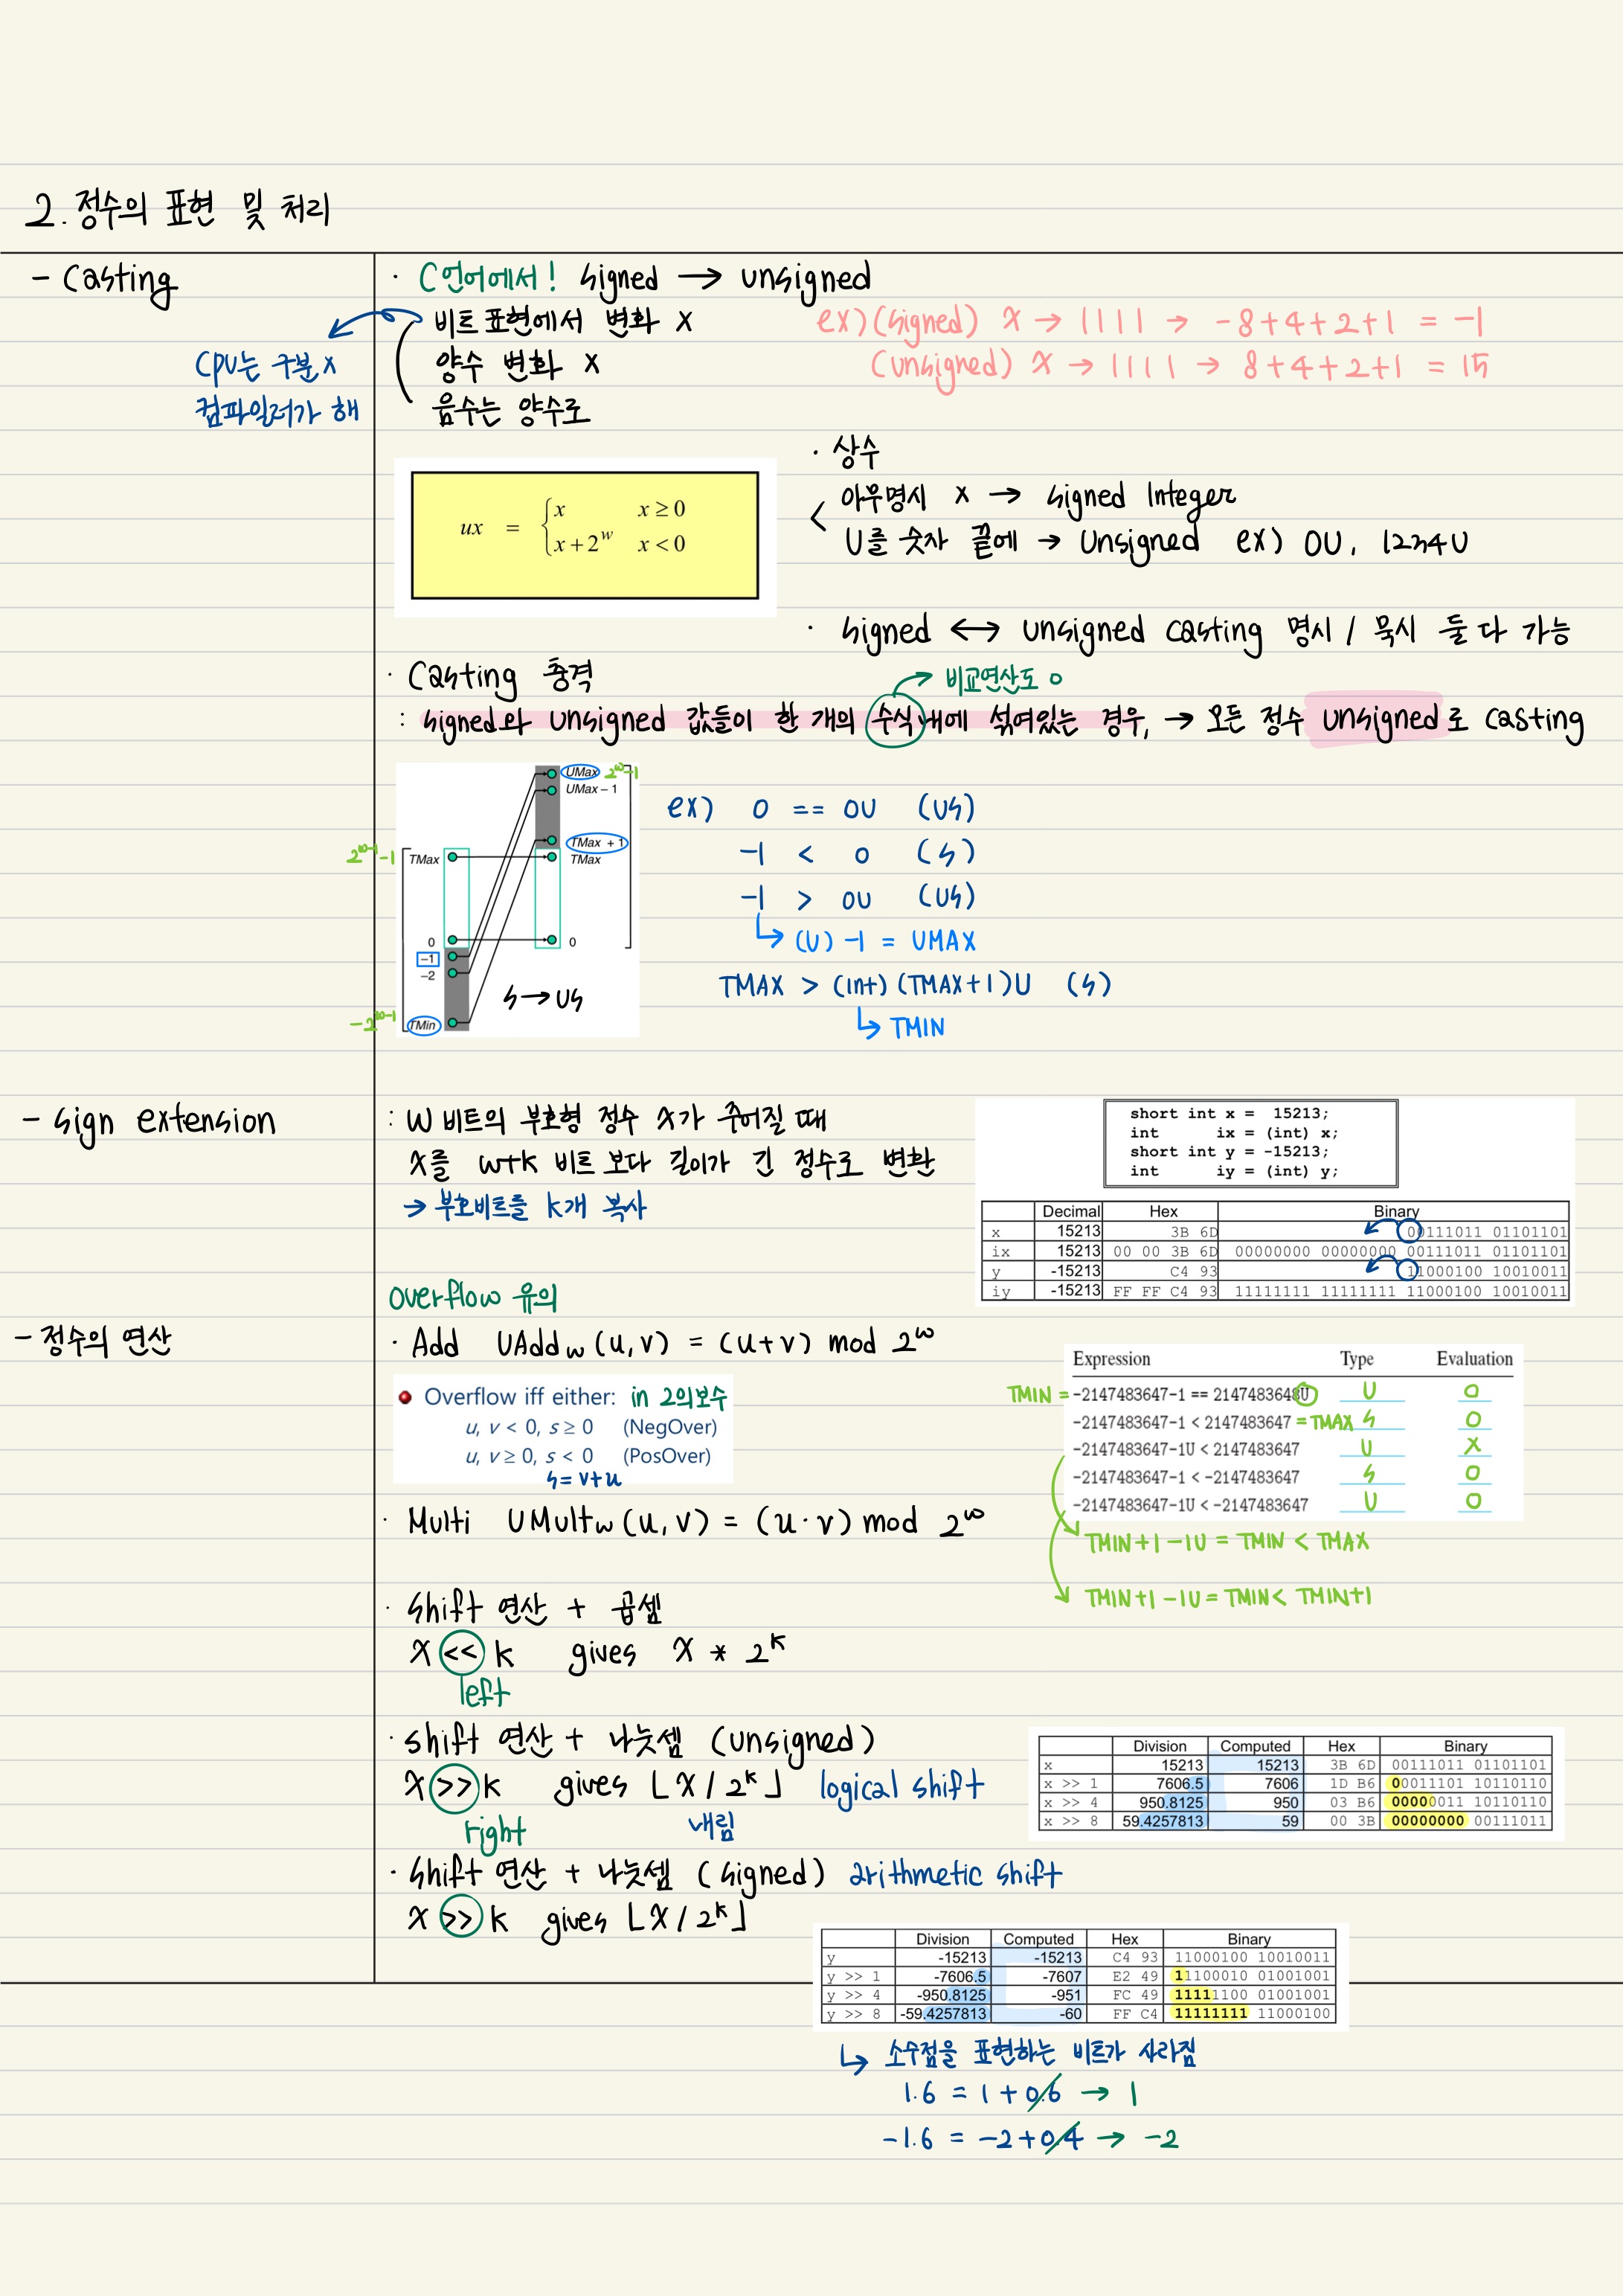 2. 정수의 표현 및 처리
- Casting
· C언어에서! signed → unsigned
비트 표현에서 변화 X
양수 변화 X
음수는 양수로
CPU는 구분 X
컴파일러가 해
ex) (signed) X → 1111 → -8+4+2+1 = -1
(unsigned) X → 1111 → 8+4+2+1 = 15
ux = { x x ≥ 0
x + 2^w x < 0
· 상수
아무명시 X → signed Integer
U를 숫자 끝에 → Unsigned ex) 0U, 1234U
· signed ↔ unsigned casting 명시 / 묵시 둘 다 가능
· Casting 충격
→ 비교연산도 O
: signed와 unsigned 값들이 한 개의 수식 내에 섞여있는 경우, → 모든 정수 unsigned로 casting
UMax 2^w-1
UMax – 1
TMax + 1
2^w-1 -1 TMax TMax
0 0
–1
–2
-2^w-1 TMin
S → US
ex) 0 == 0U (US)
-1 < 0 (S)
-1 > 0U (US)
↳ (U) -1 = UMAX
TMAX > (int) (TMAX+1)U (S)
↳ TMIN
- sign extension
: W 비트의 부호형 정수 X가 주어질 때
X를 w+k 비트 보다 길이가 긴 정수로 변환
→ 부호비트를 k개 복사
short int x = 15213;
int ix = (int) x;
short int y = -15213;
int iy = (int) y;
Decimal Hex Binary
x 15213 3B 6D 00111011 01101101
ix 15213 00 00 3B 6D 00000000 00000000 00111011 01101101
y -15213 C4 93 11000100 10010011
iy -15213 FF FF C4 93 11111111 11111111 11000100 10010011
Overflow 유의
- 정수의 연산
· Add UAdd_w (u,v) = (u+v) mod 2^w
Overflow iff either: in 2의보수
u, v < 0, s ≥ 0 (NegOver)
u, v ≥ 0, s < 0 (PosOver)
s = v+u
Expression Type Evaluation
TMIN = -2147483647-1 == 2147483648U U O
-2147483647-1 < 2147483647 = TMAX S O
-2147483647-1U < 2147483647 U X
-2147483647-1 < -2147483647 S O
-2147483647-1U < -2147483647 U O
TMIN+1-1U = TMIN < TMAX
TMIN+1-1U = TMIN < TMIN+1
· Multi UMult_w (u,v) = (u·v) mod 2^w
· Shift 연산 + 곱셈
X << k gives X * 2^k
left
· Shift 연산 + 나눗셈 (unsigned)
X >> k gives ⌊X / 2^k⌋ logical shift
right 내림
Division Computed Hex Binary
x 15213 15213 3B 6D 00111011 01101101
x >> 1 7606.5 7606 1D B6 00011101 10110110
x >> 4 950.8125 950 03 B6 00000011 10110110
x >> 8 59.4257813 59 00 3B 00000000 00111011
· Shift 연산 + 나눗셈 (signed) arithmetic shift
X >> k gives ⌊X / 2^k⌋
Division Computed Hex Binary
y -15213 -15213 C4 93 11000100 10010011
y >> 1 -7606.5 -7607 E2 49 11100010 01001001
y >> 4 -950.8125 -951 FC 49 11111100 01001001
y >> 8 -59.4257813 -60 FF C4 11111111 11000100
↳ 소수점을 표현하는 비트가 사라짐
1.6 = 1 + 0.6 → 1
-1.6 = -2 + 0.4 → -2